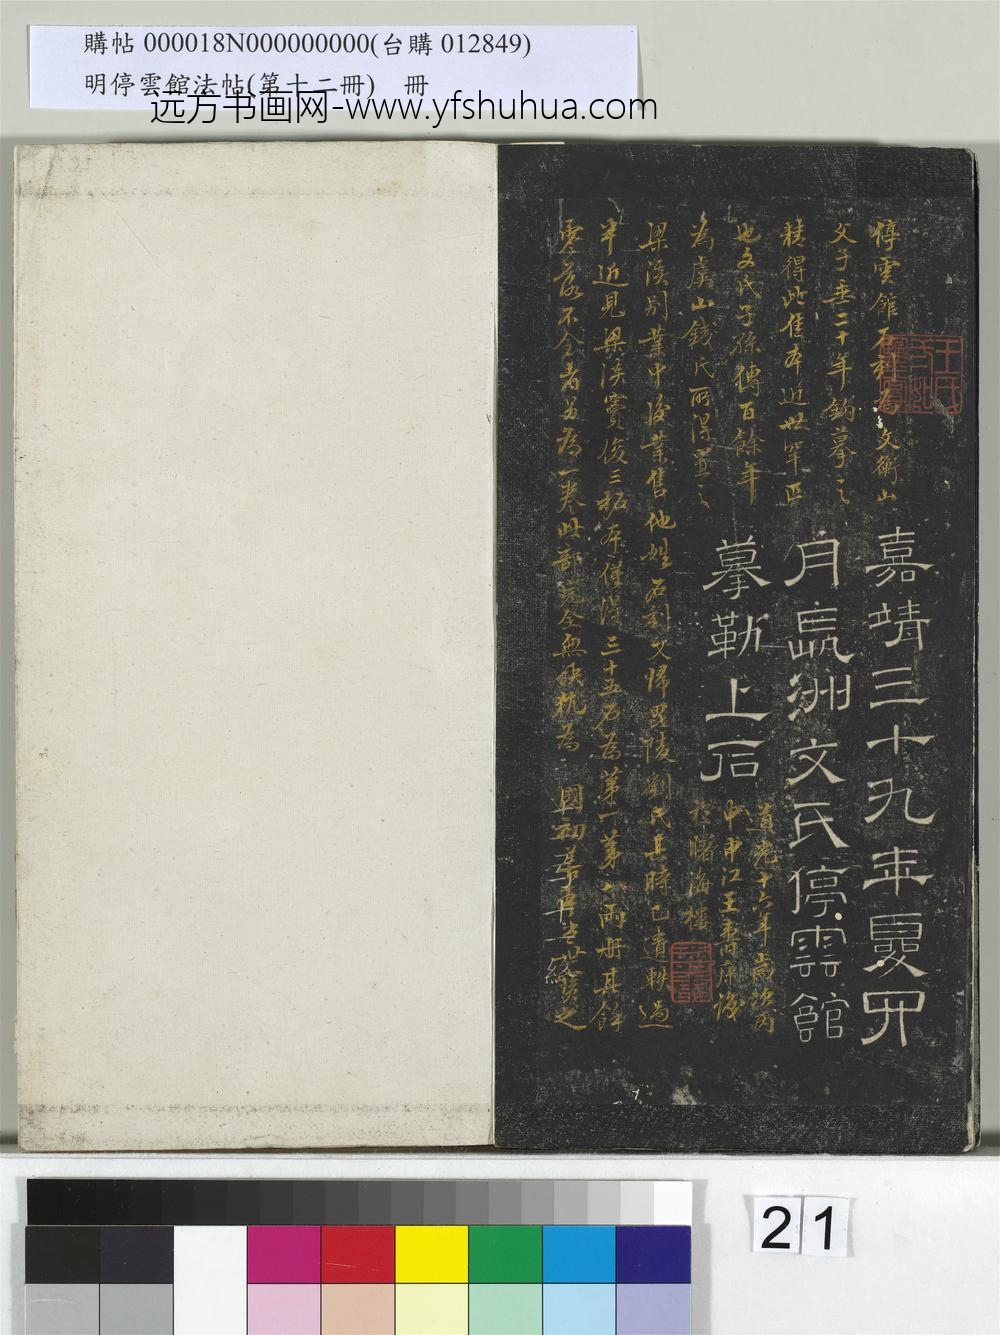 購帖 000018N000000000(台購 012849)
明停雲館法帖(第十二冊) 冊
远方书画网-www.yfshuhua.com
停雲館石刻為文衡山
父子垂二十年鈎摹之
精得此佳本近世罕匹
也文氏子孫傳百餘年
為虞山錢氏所得置之
梁溪別業中後業售他姓石刻又歸毘陵劉氏其時已遺軼過
半近見梁溪賣後三拓本僅得三十五石為第一第八兩冊其餘
零落不全者另為一卷此部完全無缺托為 國初 之
嘉靖三十九年夏四
月瀛洲文氏停雲館
摹勒上石
道光十六年歲次丙
申申江王壽康識
於曙海樓
21